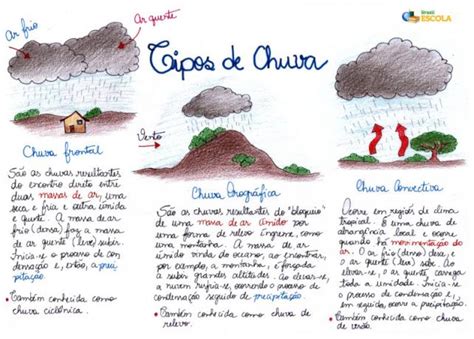 Brasil
ESCOLA
Ar frio
Ar quente
Tipos de Chuva
Vento
Chuva frontal
São as chuvas resultantes
do encontro direto entre
duas massas de ar, uma
seca e fria e outra úmida
e quente. A massa de ar
frio (densa) faz a massa
de ar quente (leve) subir.
Inicia-se o processo de con
densação e, então, a preci
pitação.
• Também conhecida como
chuva ciclônica.
Chuva Orográfica
São as chuvas resultantes do "bloqueio"
de uma massa de ar úmido por
uma forma de relevo íngreme, como
uma montanha. A massa de ar
úmido vinda do oceano, ao encontrar,
por exemplo, a montanha, é forçada
a subir grandes altitudes. Ao elevar-se,
a nuvem resfria-se, ocorrendo o processo de
condensação seguido de precipitação.
• Também conhecida como chuva de
relevo.
Chuva Convectiva
Ocorre em regiões de clima
tropical. É uma chuva de
abrangência local e ocorre
quando há movimentação do
ar. O ar frio (denso) desce, e
o ar quente (leve) sobe. Ao
elevar-se, o ar quente carrega
toda a umidade. Inicia-se o
processo de condensação e, em
seguida, ocorre a precipitação.
• Também conhecida como chuva
de verão.